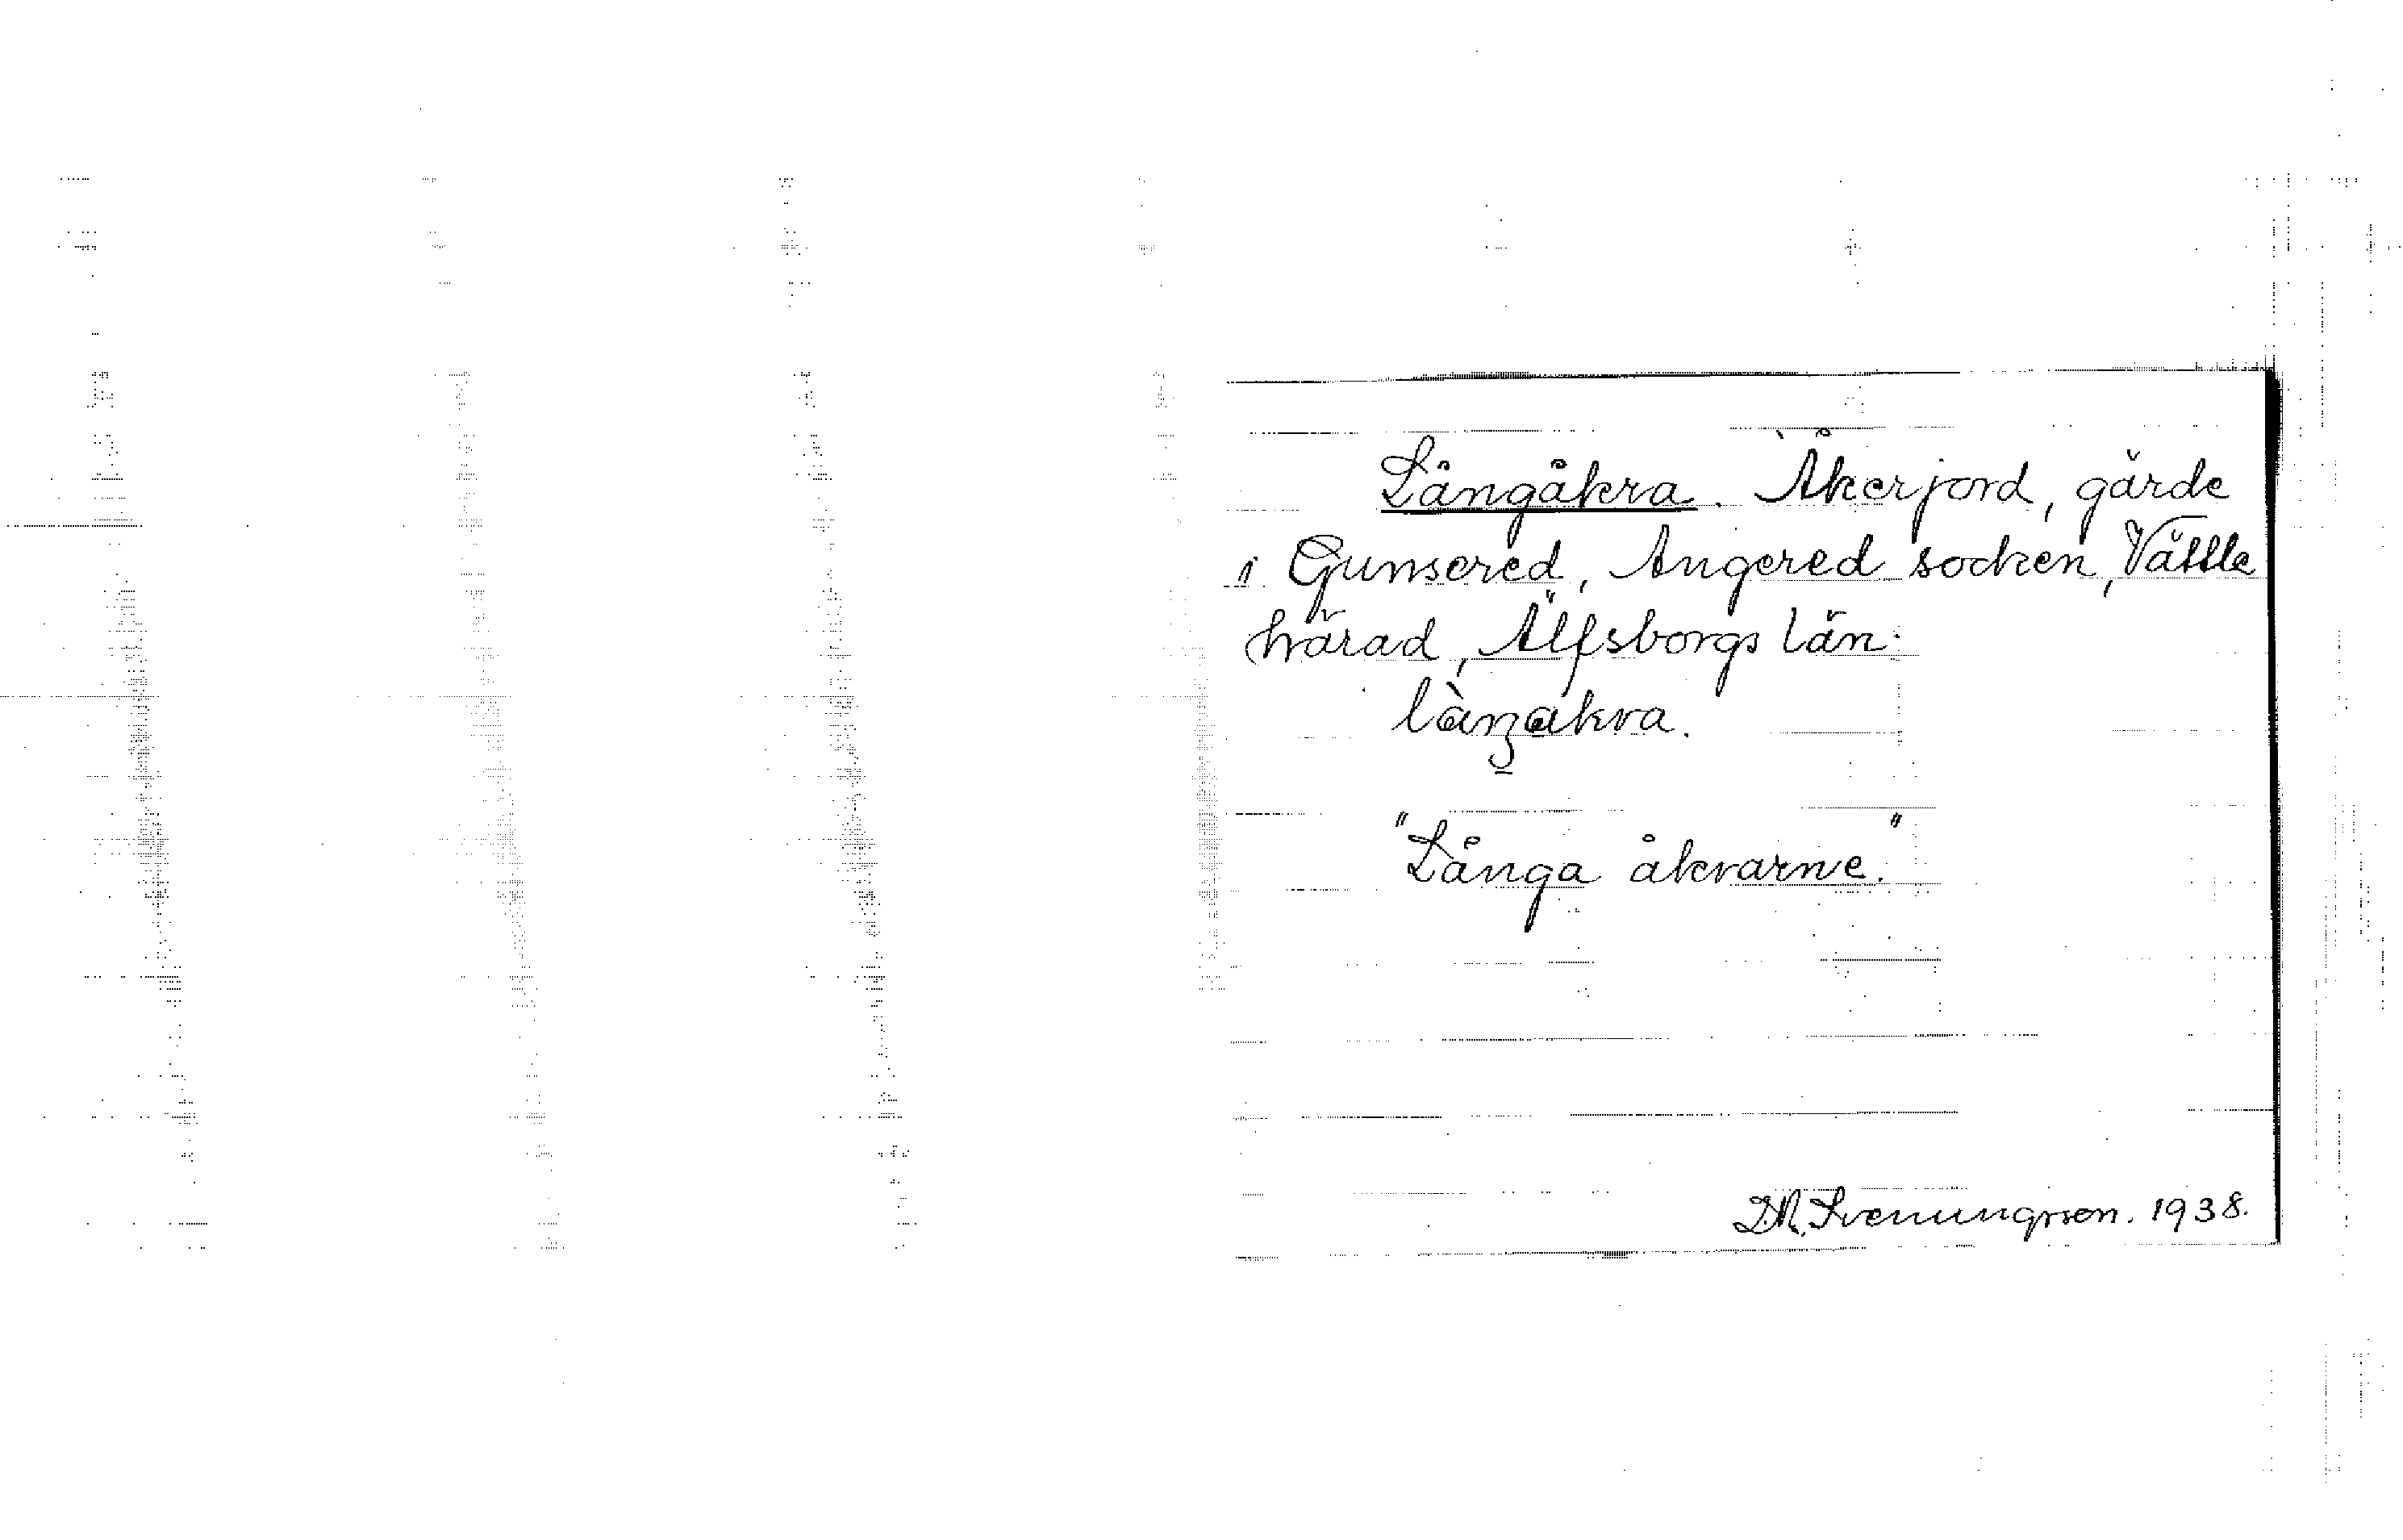 Långåkra. Åkerjord, gärde
i Gunsered, Angered socken, Vättle
härad, Älfsborgs län.
làŋakra.
"Långa åkrarne."
D.M. Svenungsson. 1938.